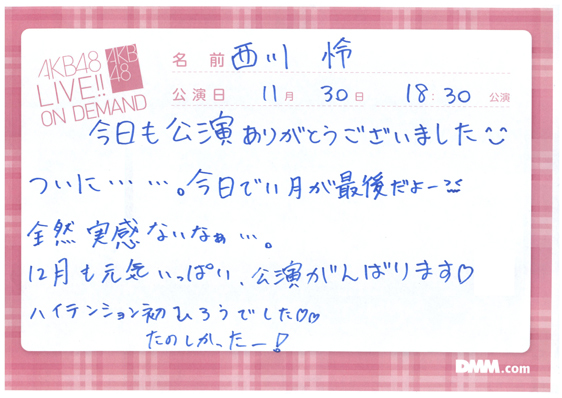 AKB48
LIVE!!
ON DEMAND
AKB
48
名 前 西川 怜
公演日 11月 30日 18:30 公演
今日も公演ありがとうございました
ついに……。今日で11月が最後だよー
全然実感ないなぁ…。
12月も元気いっぱい、公演がんばります♡
ハイテンション初ひろうでした♡♡
たのしかったー!
DMM.com